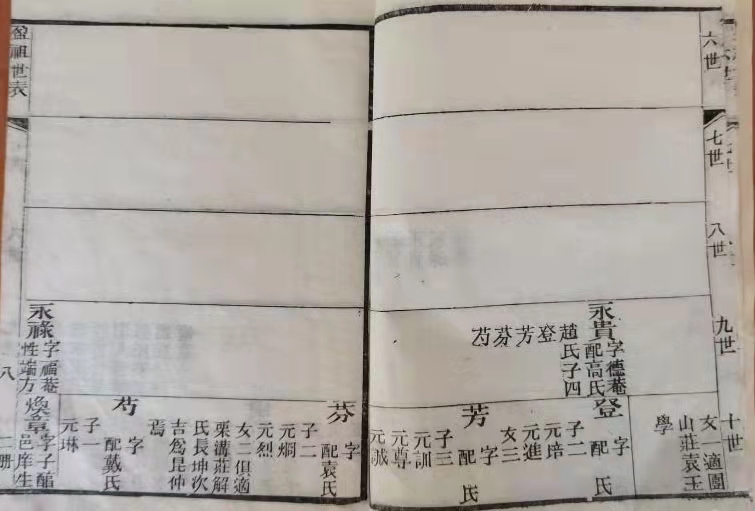 六世
七世
八世
九世
十世
永貴
字德菴
配高氏
趙氏子四
登芳芬芍
女一適團
山莊袁玉
學
登
字
配 氏
子二
元培
元進
女三
芳
字
配 氏
子三
元訓
元尊
元誠
芬
字
配袁氏
子二
元烱
元烈
女二俱適
栗溝莊解
氏長坤次
吉爲昆仲
焉
芍
字
配戴氏
子一
元琳
永祿
字福菴
性端方
煥章
字子
邑庠生
祖世表
八
二册